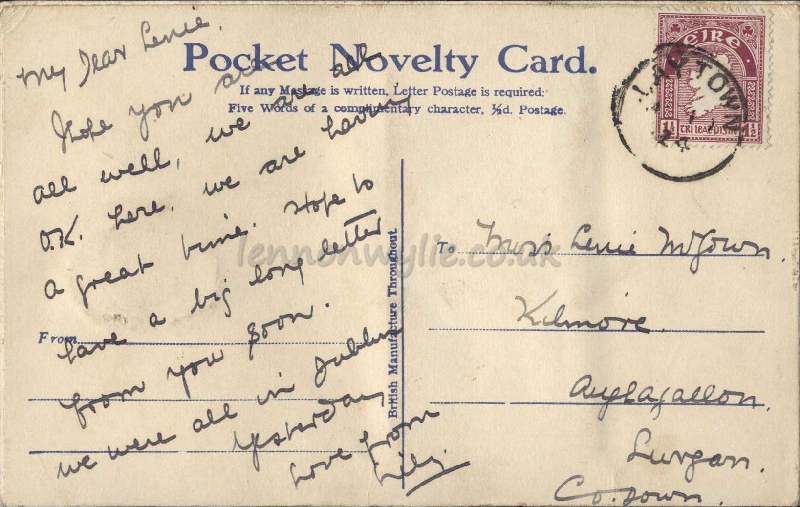 Pocket Novelty Card.
If any Message is written, Letter Postage is required;
Five Words of a complimentary character, ½d. Postage.
My Dear Lenie,
Hope you are
all well, we are all
O.K. here, we are having
a great time. Hope to
have a big long letter
from you soon.
we were all in Dublin
yesterday
Love from
Lily.
From
British Manufacture Throughout
To Miss Lenie McGown.
Kilmore.
Aughagallon.
Lurgan.
Co. Down.
éıre
1½
LAYTOWN
24
lennonwylie.co.uk